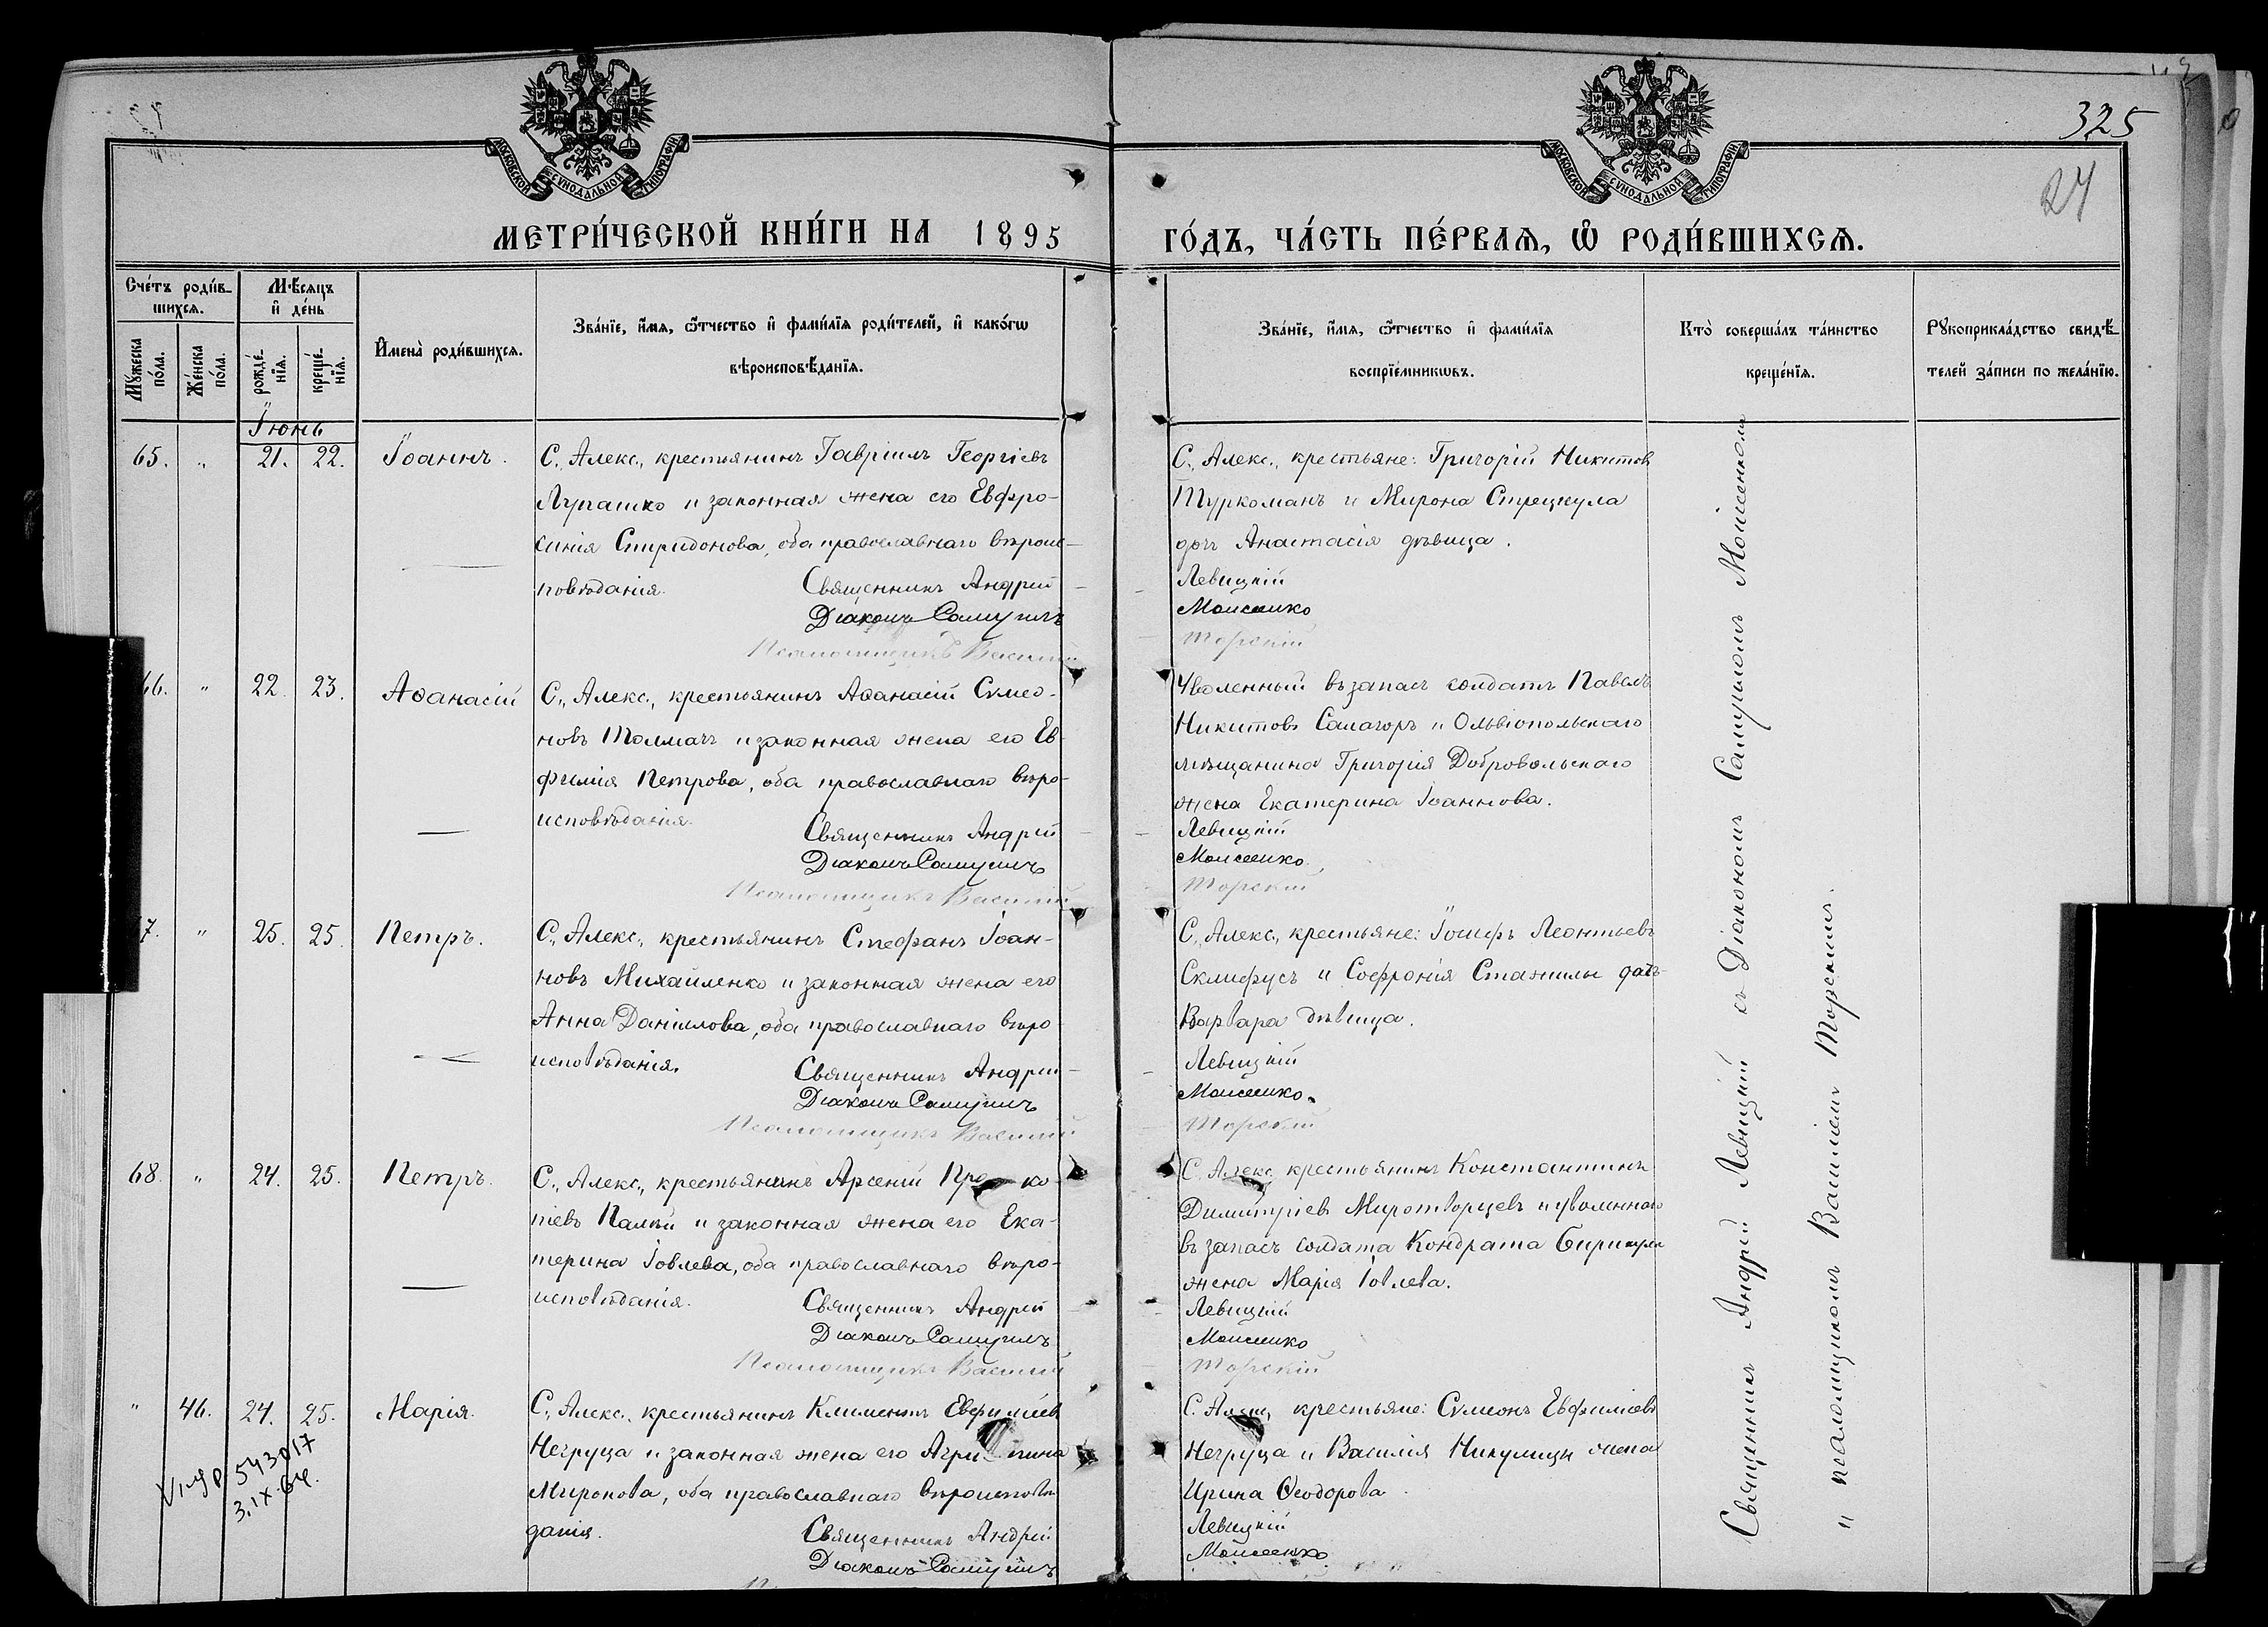 325
24
МОСКОВСКОЙ СѴНОДАЛЬНОЙ ТИПОГРАФІИ
МОСКОВСКОЙ СѴНОДАЛЬНОЙ ТИПОГРАФІИ
МЕТРИ́ЧЕСКОЙ КНИ́ГИ НА 1895
ГО́ДЪ, ЧА́СТЬ ПЕ́РВАѦ, Ѽ РОДИ́ВШИХСѦ.
Сче́тъ роди́в-
шихсѧ.
Мꙋ́жеска по́ла.
Же́нска по́ла.
Мѣ́сѧцъ
и҆ де́нь
рожде́-
нїѧ.
креще́-
нїѧ.
И҆мена̀ роди́вшихсѧ.
Зва́нїе, и҆́мѧ, ѻ҆́тчество и҆ фами́лїѧ роди́телей, и҆ како́гѡ
вѣроисповѣ́данїѧ.
Зва́нїе, и҆́мѧ, ѻ҆́тчество и҆ фами́лїѧ
воспрїе́мникѡвъ.
Кто̀ соверша́лъ та́инство
креще́нїѧ.
Рꙋкоприкла́дство свидѣ́-
телей за́писи по жела́нїю.
Іюнь
65. " 21. 22. Іоаннъ.
С. Алекс., крестьянинъ Гавріилъ Георгіевъ
Лупашко и законная жена его Евфро-
синія Спиридонова, оба православнаго вѣроис-
повѣданія. Священникъ Андрей
Діаконъ Самуилъ
Псаломщикъ Василій
С. Алекс., крестьяне: Григорій Никитовъ
Туркоманъ и Мирона Стрецкула
дочь Анастасія дѣвица.
Левицкій
Моисеенко
Торскій
66. " 22. 23. Аѳанасій
С. Алекс., крестьянинъ Аѳанасій Сѵмео-
новъ Толмачъ и законная жена его Ев-
фимія Петрова, оба православнаго вѣро-
исповѣданія. Священникъ Андрей
Діаконъ Самуилъ
Псаломщикъ Василій
Уволенный въ запасъ солдатъ Павелъ
Никитовъ Салагоръ и Ольвіопольскаго
мѣщанина Григорія Добровольскаго
жена Екатерина Іоаннова.
Левицкій
Моисеенко
Торскій
7. " 25. 25. Петръ.
С. Алекс., крестьянинъ Стефанъ Іоан-
новъ Михайленко и законная жена его
Анна Даніилова, оба православнаго вѣро-
исповѣданія. Священникъ Андрей
Діаконъ Самуилъ
Псаломщикъ Василій
С. Алекс., крестьяне: Іосифъ Леонтьевъ
Склифусъ и Софронія Стажилы дочь
Варвара дѣвица.
Левицкій
Моисеенко
Торскій
68. " 24. 25. Петръ.
С. Алекс., крестьянинъ Арсеній Проко-
піевъ Палій и законная жена его Ека-
терина Іовлева, оба православнаго вѣро-
исповѣданія. Священникъ Андрей
Діаконъ Самуилъ
Псаломщикъ Василій
С. Алекс. крестьянинъ Константинъ
Димитріевъ Миротворцевъ и уволеннаго
въ запасъ солдата Кондрата
жена Марія Іовлева.
Левицкій
Моисеенко
Торскій
" 46. 24. 25. Марія.
С. Алекс. крестьянинъ Климентъ Евфиміевъ
Негруца и законная жена его Агрипина
Миронова, оба православнаго вѣроисповѣ-
данія. Священникъ Андрей
Діаконъ Самуилъ
С. Алекс, крестьяне: Сѵмеонъ Евфиміевъ
Негруца и Василія Никулицы жена
Ирина Ѳеодорова.
Левицкій
Моисеенко
543017
3.IX.64.
Священникъ Андрей Левицкій съ Діакономъ Самуиломъ Моисеенкомъ
и псаломщикомъ Василіемъ Торскимъ.